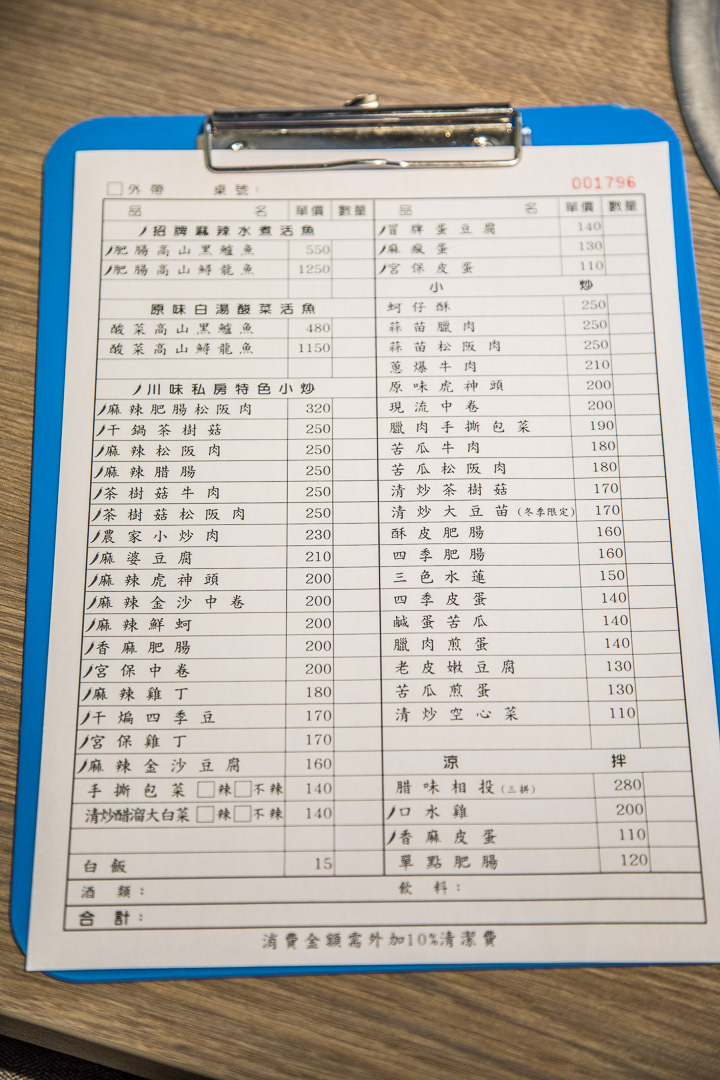 □外帶 桌號：
001796
品名 單價 數量
招牌麻辣水煮活魚
肥腸高山黑鱸魚 550
肥腸高山鱘龍魚 1250
原味白湯酸菜活魚
酸菜高山黑鱸魚 480
酸菜高山鱘龍魚 1150
川味私房特色小炒
麻辣肥腸松阪肉 320
干鍋茶樹菇 250
麻辣松阪肉 250
麻辣腊腸 250
茶樹菇牛肉 250
茶樹菇松阪肉 250
農家小炒肉 230
麻婆豆腐 210
麻辣虎神頭 200
麻辣金沙中卷 200
麻辣鮮蚵 200
香麻肥腸 200
宮保中卷 200
麻辣雞丁 180
干煸四季豆 170
宮保雞丁 170
麻辣金沙豆腐 160
手撕包菜 □辣□不辣 140
清炒醋溜大白菜 □辣□不辣 140
白飯 15
品名 單價 數量
冒牌蛋豆腐 140
麻瘋蛋 130
宮保皮蛋 110
小炒
蚵仔酥 250
蒜苗臘肉 250
蒜苗松阪肉 250
蔥爆牛肉 210
原味虎神頭 200
現流中卷 200
臘肉手撕包菜 190
苦瓜牛肉 180
苦瓜松阪肉 180
清炒茶樹菇 170
清炒大豆苗(冬季限定) 170
酥皮肥腸 160
四季肥腸 160
三色水蓮 150
四季皮蛋 140
鹹蛋苦瓜 140
臘肉煎蛋 140
老皮嫩豆腐 130
苦瓜煎蛋 130
清炒空心菜 110
涼拌
腊味相投(三拼) 280
口水雞 200
香麻皮蛋 110
單點肥腸 120
酒類： 飲料：
合計：
消費金額需外加10%清潔費